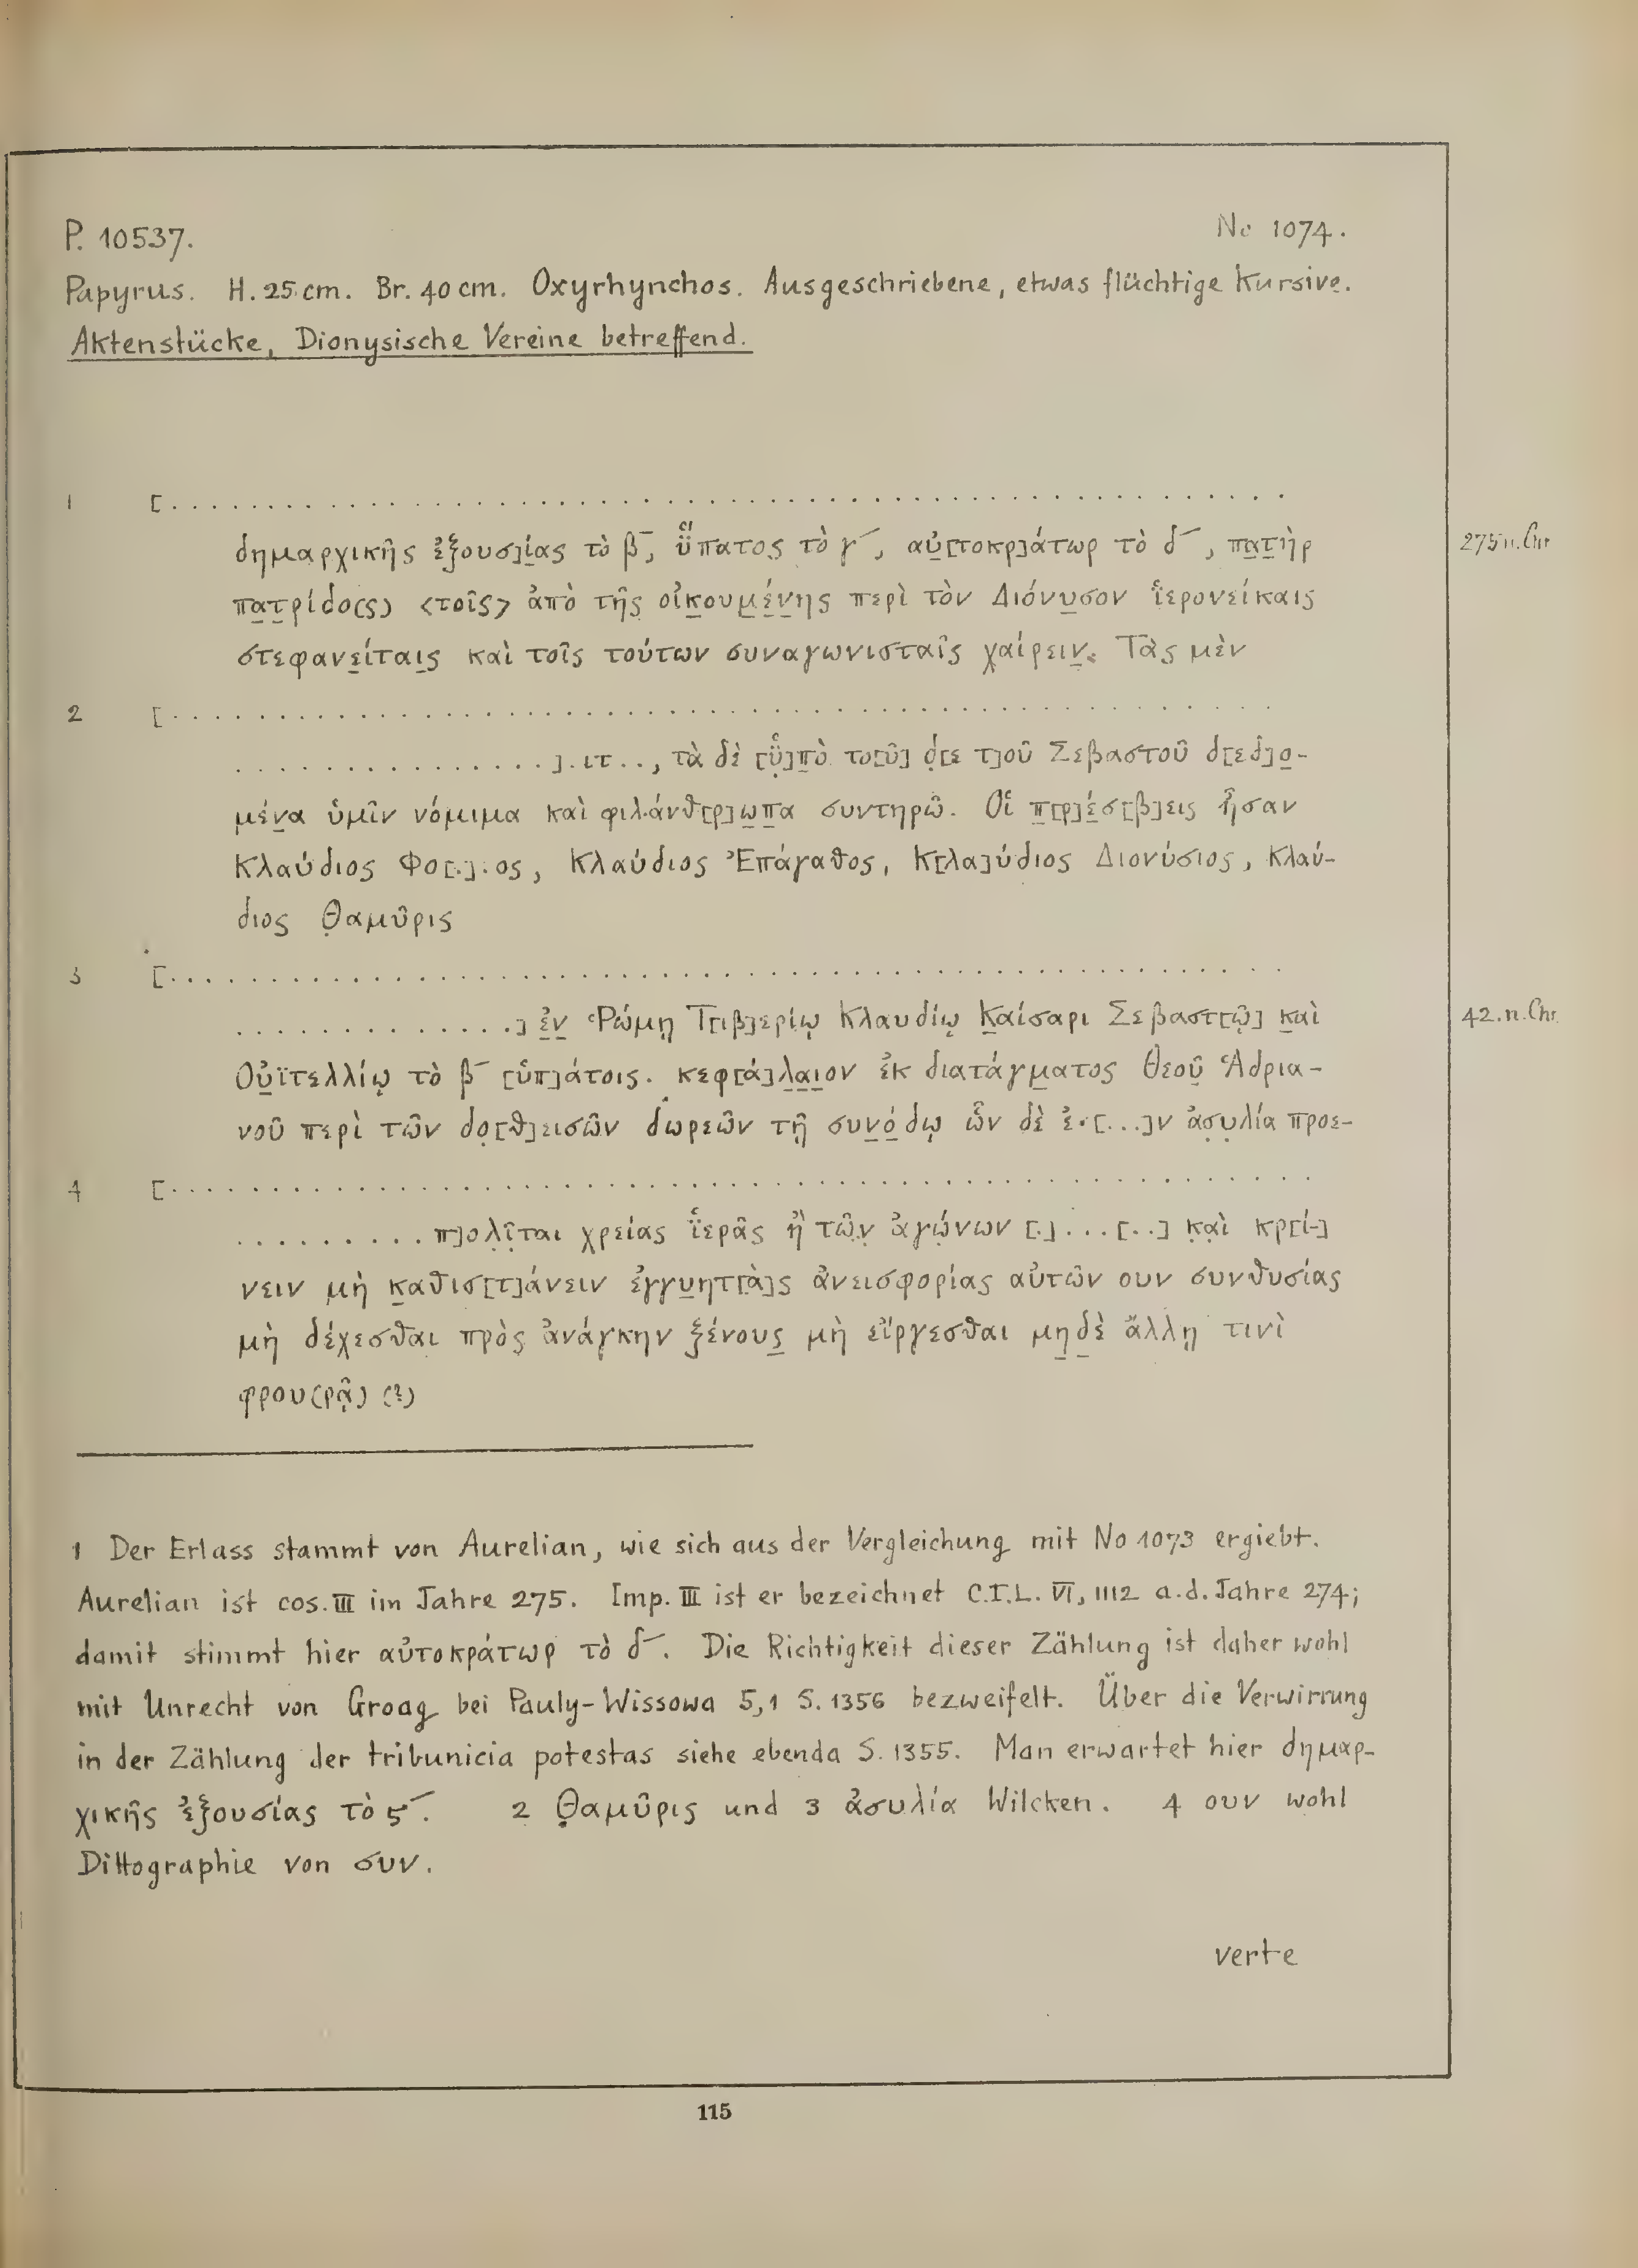 P. 10537. No 1074.
Papyrus. H. 25 cm. Br. 40 cm. Oxyrhynchos. Ausgeschriebene, etwas flüchtige Kursive.
Aktenstücke, Dionysische Vereine betreffend.
1 [. . . . . . . . . . . . . . . . . . . . . . . . . . . . . . . . . . . . . . . .
δημαρχικῆς ἐξουσ]ί̣ας τὸ β‾, ὕ̈πατος τὸ γ‾, αὐ̣[τοκρ]άτωρ τὸ δ‾, πα̣τ̣ὴρ 275 n. Chr.
πα̣τ̣ρίδο(ς) <τοῖς> ἀπὸ τῆς οἰκ̣ουμ̣έ̣ν̣ης περὶ τὸν Διόνυ̣σον ἱ̈ερονείκαις
στεφανε̣ίται̣ς καὶ τοῖς τούτων συναγωνισταῖς χαίρειν̣. Τὰς μὲν
2 [. . . . . . . . . . . . . . . . . . . . . . . . . . . . . . . . . . . . . . . .
. . . . . . . . . . . . . . . .]. ιτ . . , τὰ δὲ [ὑ̈]π̣ὸ το[ῦ] ὁ̣[ε τ]οῦ Σεβαστοῦ δ[εδ]ο̣-
μέν̣α ὑμῖν νόμιμα καὶ φιλάνθ[ρ]ω̣π̣α συντηρῶ. Οἱ π̣[ρ]έ̣σ[β]εις ἦσαν
Κλαύδιος Φο[.].ος, Κλαύδιος Ἐπάγαθος, Κ[λα]ύδιος Διονύσιος, Κλαύ-
διος Θ̣αμῦρις
3 [. . . . . . . . . . . . . . . . . . . . . . . . . . . . . . . . . . . . . . . .
. . . . . . . . . . . . . .] ἐ̣ν̣ Ῥώμῃ Τ[ιβ]ερίῳ Κλαυδίῳ Κ̣αίσαρι Σεβαστ[ῷ] κ̣αὶ 42. n. Chr.
Οὐ̣ϊτελλίῳ τὸ β‾ [ὑπ]άτοις. κεφ[ά]λ̣α̣ι̣ον ἐκ διατάγμ̣ατος θεοῦ̣ Ἁδρια-
νοῦ περὶ τῶν δο̣[θ]εισῶν δωρεῶν τῇ συν̣ό̣δῳ ὧν δὲ ἐ.[...]ν ἀσ̣υ̣λία προε-
4 [. . . . . . . . . . . . . . . . . . . . . . . . . . . . . . . . . . . . . . . .
. . . . . . . . . π]ολ̣ῖ̣ται χρείας ἱ̈ερᾶς ἢ̣ τῶν̣ ἀγώ̣νων [.] . . . [. .] κ̣α̣ὶ κρ[ί-]
νειν μὴ κ̣αθισ[τ]άνειν ἐγγυ̣ητ[ὰ]ς ἀνεισφορίας αὐτῶν ουν συνθυσίας
μὴ δέχεσθαι πρὸς ἀνάγκην ξένους̣ μὴ εἴργεσθαι μη̣δ̣ὲ ἄλλῃ τινὶ
φρου(ρᾷ) (?)
1 Der Erlass stammt von Aurelian, wie sich aus der Vergleichung mit No 1073 ergiebt.
Aurelian ist cos. III im Jahre 275. Imp. III ist er bezeichnet C.I.L. VI, 1112 a.d. Jahre 274;
damit stimmt hier αὐτοκράτωρ τὸ δ‾. Die Richtigkeit dieser Zählung ist daher wohl
mit Unrecht von Groag bei Pauly-Wissowa 5,1 S. 1356 bezweifelt. Über die Verwirrung
in der Zählung der tribunicia potestas siehe ebenda S. 1355. Man erwartet hier δημαρ-
χικῆς ἐξουσίας τὸ ϛ‾. 2 Θ̣αμῦρις und 3 ἀσυλία Wilcken. 4 ουν wohl
Dittographie von συν.
verte
115